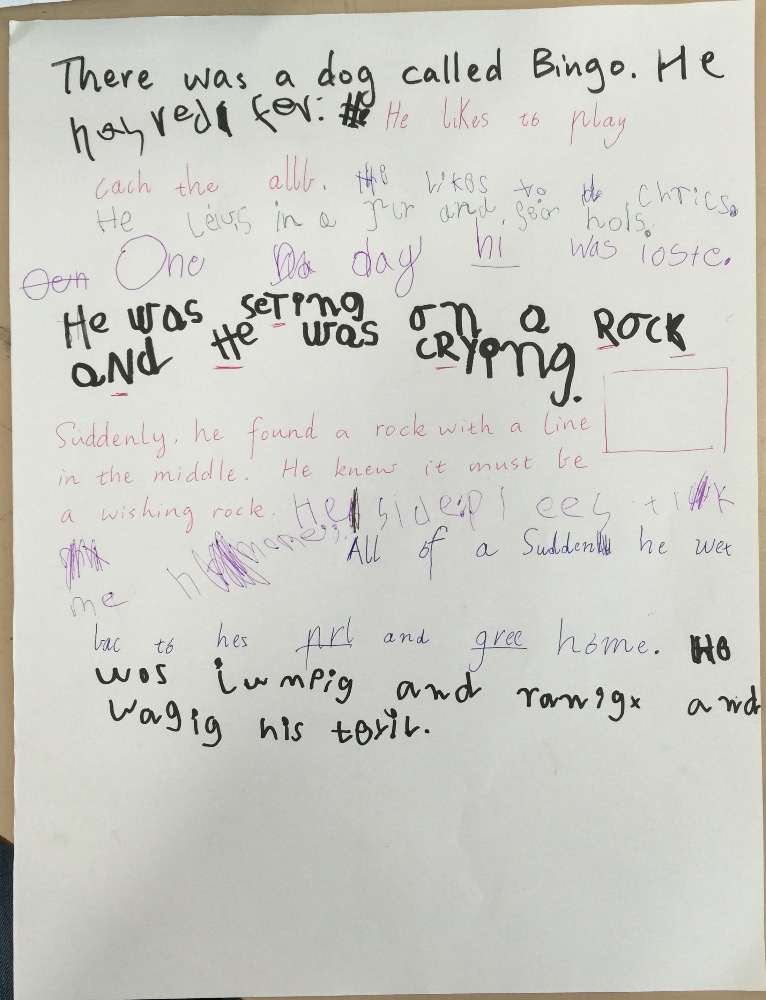 There was a dog called Bingo. He
hay red fer: He likes to play
cach the allb. He likes to chrics.
He leivs in a and hols.
One day hi was loste.
He was seTing on a ROCK
aNd He was CRYPng.
Suddenly, he found a rock with a line
in the middle. He knew it must be
a wishing rock. He side pl ees t k
me
All of a Suddenll he wet
bac to hes prl and gree home. He
wos iumpig and ranigx and
wagig his teril.